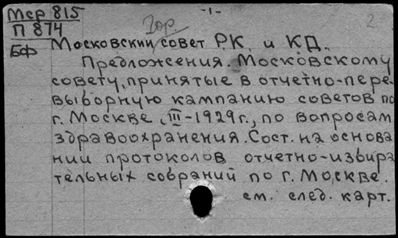 Мср 815
-1-
2
П 874
Гор.
БФ
Московский совет РК и КД.
Предложения Московскому
совету, принятые в отчетно-пере-
выборную кампанию советов по
г. Москве, III-1929г., по вопросам
здравоохранения. Сост. на основа
нии протоколов отчетно-избира
тельных собраний по г. Москве.
см. след. карт.